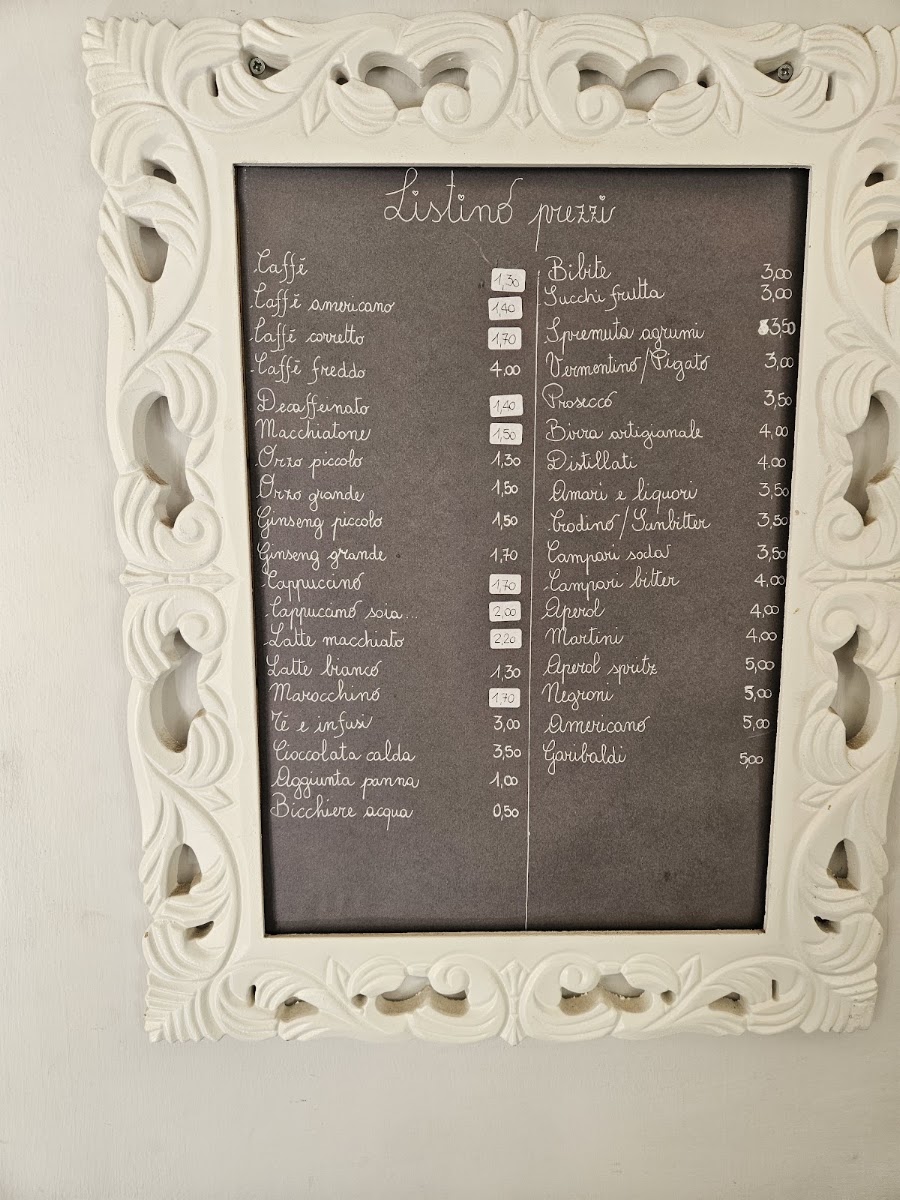 Listino prezzi
Caffè 1,30
Caffè americano 1,40
Caffè corretto 1,70
Caffè freddo 4,00
Decaffeinato 1,40
Macchiatone 1,50
Orzo piccolo 1,30
Orzo grande 1,50
Ginseng piccolo 1,50
Ginseng grande 1,70
Cappuccino 1,70
Cappuccino soia... 2,00
Latte macchiato 2,20
Latte bianco 1,30
Marocchino 1,70
Tè e infusi 3,00
Cioccolata calda 3,50
Aggiunta panna 1,00
Bicchiere acqua 0,50
Bibite 3,00
Succhi frutta 3,00
Spremuta agrumi 3,50
Vermentino/Pigato 3,00
Prosecco 3,50
Birra artigianale 4,00
Distillati 4,00
Amari e liquori 3,50
Crodino/Sanbitter 3,50
Campari soda 3,50
Campari bitter 4,00
Aperol 4,00
Martini 4,00
Aperol spritz 5,00
Negroni 5,00
Americano 5,00
Garibaldi 5,00